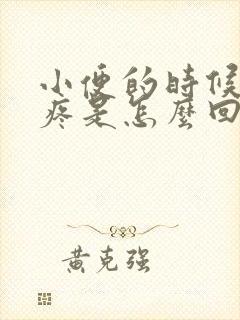 小便的時候
疼是怎麼回
黄克强